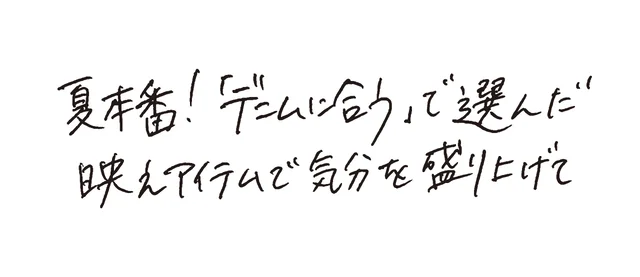 夏本番!「デニムに合う」で選んだ
映えアイテムで気分を盛り上げて